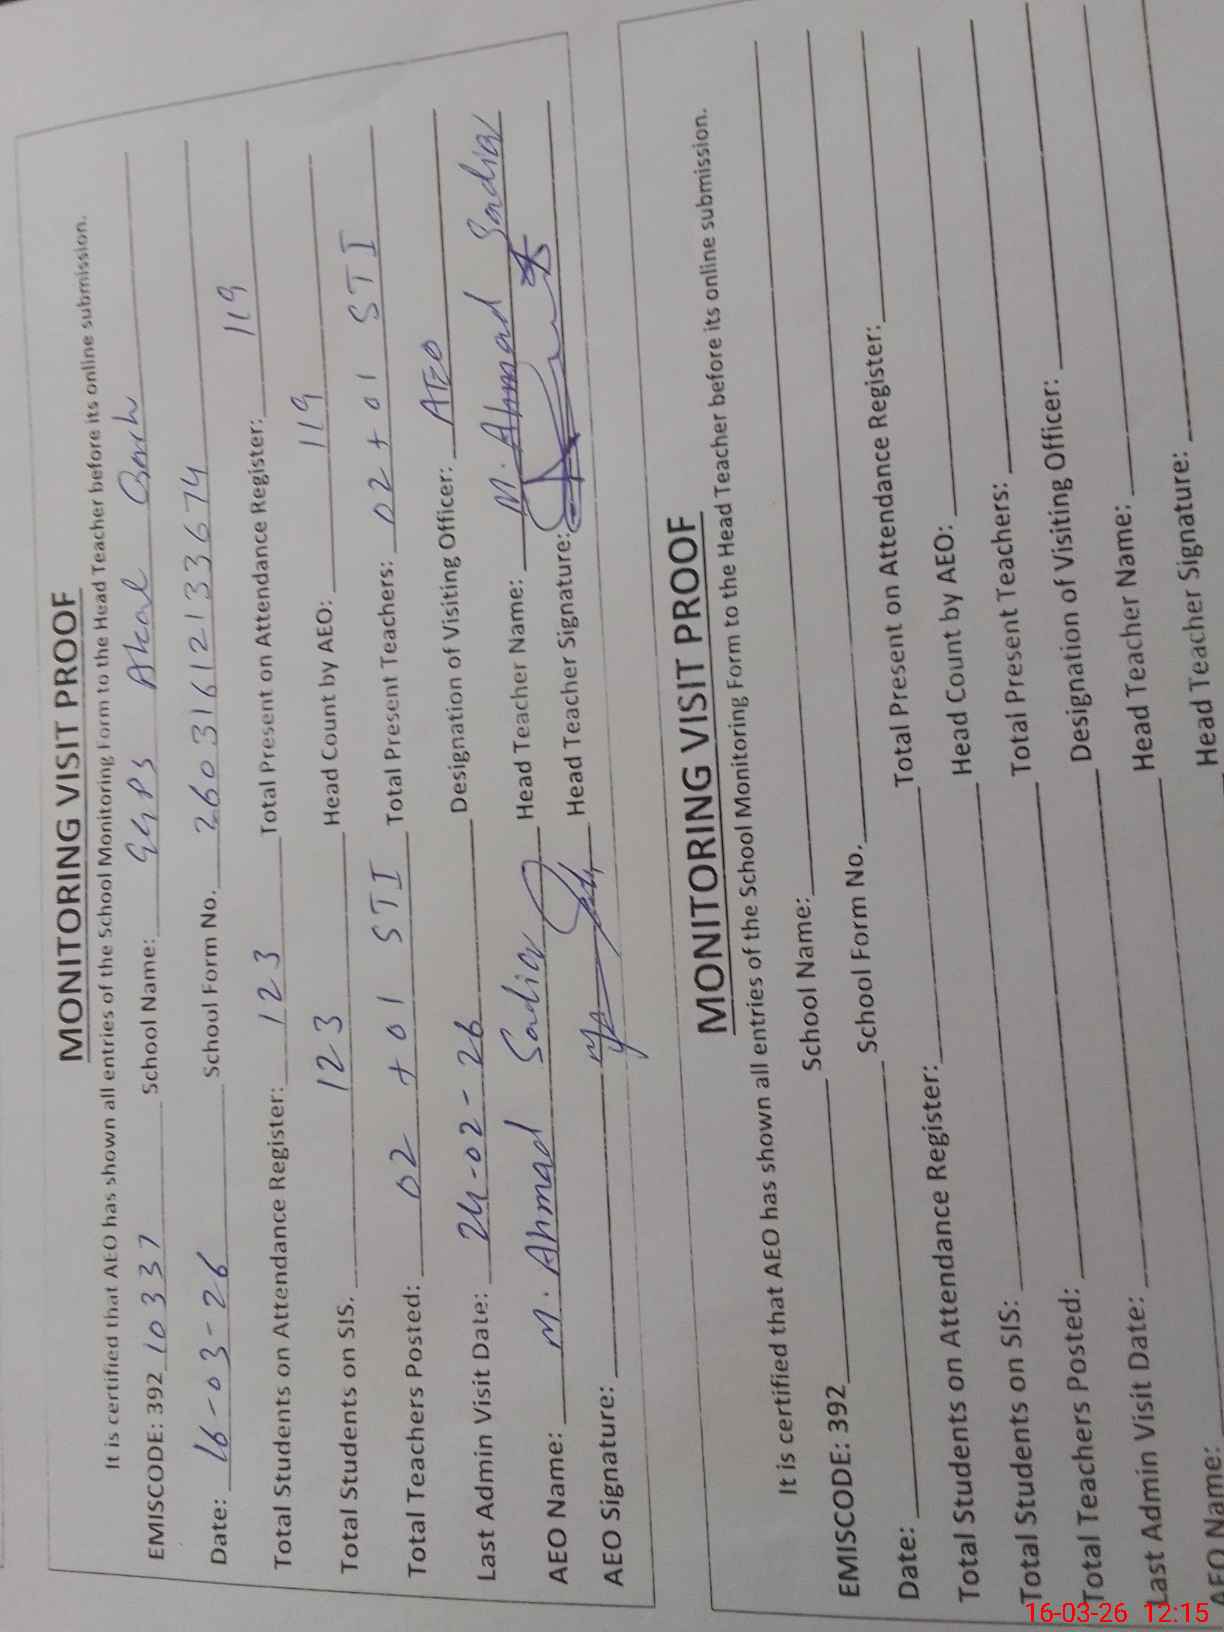 MONITORING VISIT PROOF
It is certified that AEO has shown all entries of the School Monitoring Form to the Head Teacher before its online submission.
EMISCODE: 392 10337 School Name: GGPS Akal Garh
Date: 16-03-26 School Form No. 26031612133674
Total Students on Attendance Register: 123 Total Present on Attendance Register: 119
Total Students on SIS. 123 Head Count by AEO: 119
Total Teachers Posted: 02 + 01 STI Total Present Teachers: 02 + 01 STI
Last Admin Visit Date: 24-02-26 Designation of Visiting Officer: AEO
AEO Name: M. Ahmad Sadiq Head Teacher Name: M. Ahmad Sadiq
AEO Signature: Head Teacher Signature:
MONITORING VISIT PROOF
It is certified that AEO has shown all entries of the School Monitoring Form to the Head Teacher before its online submission.
EMISCODE: 392 School Name:
Date: School Form No.
Total Students on Attendance Register: Total Present on Attendance Register:
Total Students on SIS: Head Count by AEO:
Total Teachers Posted: Total Present Teachers:
Last Admin Visit Date: Designation of Visiting Officer:
AEO Name: Head Teacher Name:
Head Teacher Signature:
16-03-26 12:15